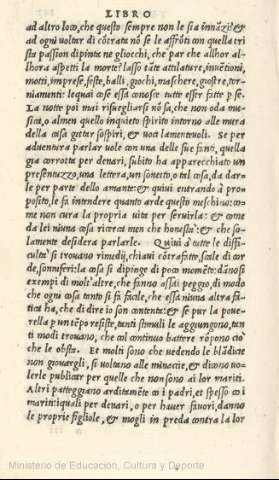 LIBRO
ad altro loco, che questo sempre non le sia innãzi: &
ad ogni voltar di cõtrata nõ se le affrõti con quella tri
sta passion dipinta ne gliocchi, che par che allhor al-
lhora aspetti la morte? lasso tãte attilature, inuẽtioni,
motti, imprese, feste, balli, giochi, maschere, giostre, tor-
niamenti: le quai cose essa conosce tutte esser fatte p̃ se.
La notte poi mai risuegliarsi nõ sa, che non oda mu-
sica, o almen quello inquieto spirito intorno alle mura
della casa gittar sospiri, & uoci lamenteuoli. Se per
aduentura parlar uole con una delle sue fanti, quella
gia corrotta per denari, subito ha apparecchiato un
presentuzzo, una lettera, un sonetto, o tal cosa, da dar-
le per parte dello amante: & quiui entrando à pro-
posito, le fa intendere quanto arde questo meschino: co-
me non cura la propria uita per seruirla: & come
da lei niuna cosa ricerca men che honesta: & che so-
lamente desidera parlarle. Quiui à tutte le diffi-
cultà si trouano rimedij, chiaui cõtrafatte, scale di cor
de, sonniferi: la cosa si dipinge di poco momẽto: dãnosi
exempi di molt'altre, che fanno assai peggio, di modo
che ogni cosa tanto si fa facile, che essa niuna altra fa-
tica ha, che di dire io son contenta: & se pur la poue-
rella p un tẽpo resiste, tanti stimuli le aggiungono, tan
ti modi trouano, che col continuo battere rõpono ciò
che le obsta. Et molti sono che uedendo le blãdicie
non giouargli, si uoltano alle minaccie, & dicono uo-
lerle publicar per quelle che non sono ai lor mariti.
Altri patteggiano arditamẽte co i padri, et spesso co i
mariti: iquali per denari, o per hauer fauori, danno
le proprie figliole, & mogli in preda contra la lor
Ministerio de Educación, Cultura y Deporte